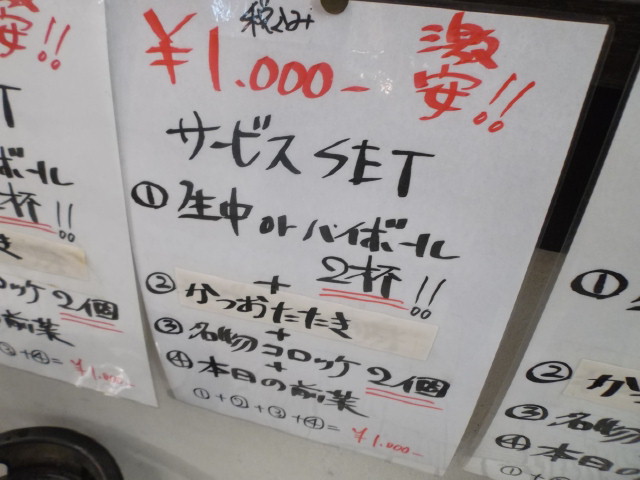 税込み
¥1.000- 激安!!
サービスSET
①生中 or ハイボール
+ 2杯!!
②かつおたたき
+
③名物コロッケ2個
+
④本日の前菜
①+②+③+④= ¥1.000-
安!!
T
ボール
2杯!!
き
ロッケ2個
前菜
③+④= ¥1.000-
①
②か
③名物
④本日の
①+②